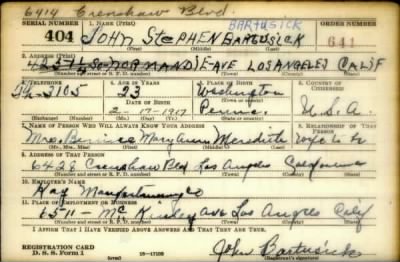 6414 Crenshaw Blvd.
SERIAL NUMBER 1. NAME (Print) ORDER NUMBER
BARTUSICK
404 JOHN STEPHEN BARTUSICK 641
(First) (Middle) (Last)
2. ADDRESS (Print)
4251½ SO. NORMANDIE AVE LOS ANGELES CALIF
(Number and street or R. F. D. number) (Town) (County) (State)
3. TELEPHONE 4. AGE IN YEARS 5. PLACE OF BIRTH 6. COUNTRY OF CITIZENSHIP
3105 23 Washington
DATE OF BIRTH
2-17-1917 Penna. U.S.A.
(Exchange) (Number) (Mo.) (Day) (Yr.) (State or country)
7. NAME OF PERSON WHO WILL ALWAYS KNOW YOUR ADDRESS RELATIONSHIP OF THAT PERSON
Mrs Mary Meredith
(Mr., Mrs., Miss) (First) (Middle) (Last)
8. ADDRESS OF THAT PERSON
6428 Crenshaw Blvd Los Angeles California
(Number and street or R. F. D. number) (Town) (County) (State)
10. EMPLOYER'S NAME
Kay Manufacturing Co
11. PLACE OF EMPLOYMENT OR BUSINESS
6511 - McKinley Ave Los Angeles Calif
(Number and street or R. F. D. number) (Town) (County) (State)
I AFFIRM THAT I HAVE VERIFIED ABOVE ANSWERS AND THAT THEY ARE TRUE.
REGISTRATION CARD
D. S. S. Form 1 16-17105 John Bartusick
(over) (Registrant's signature)